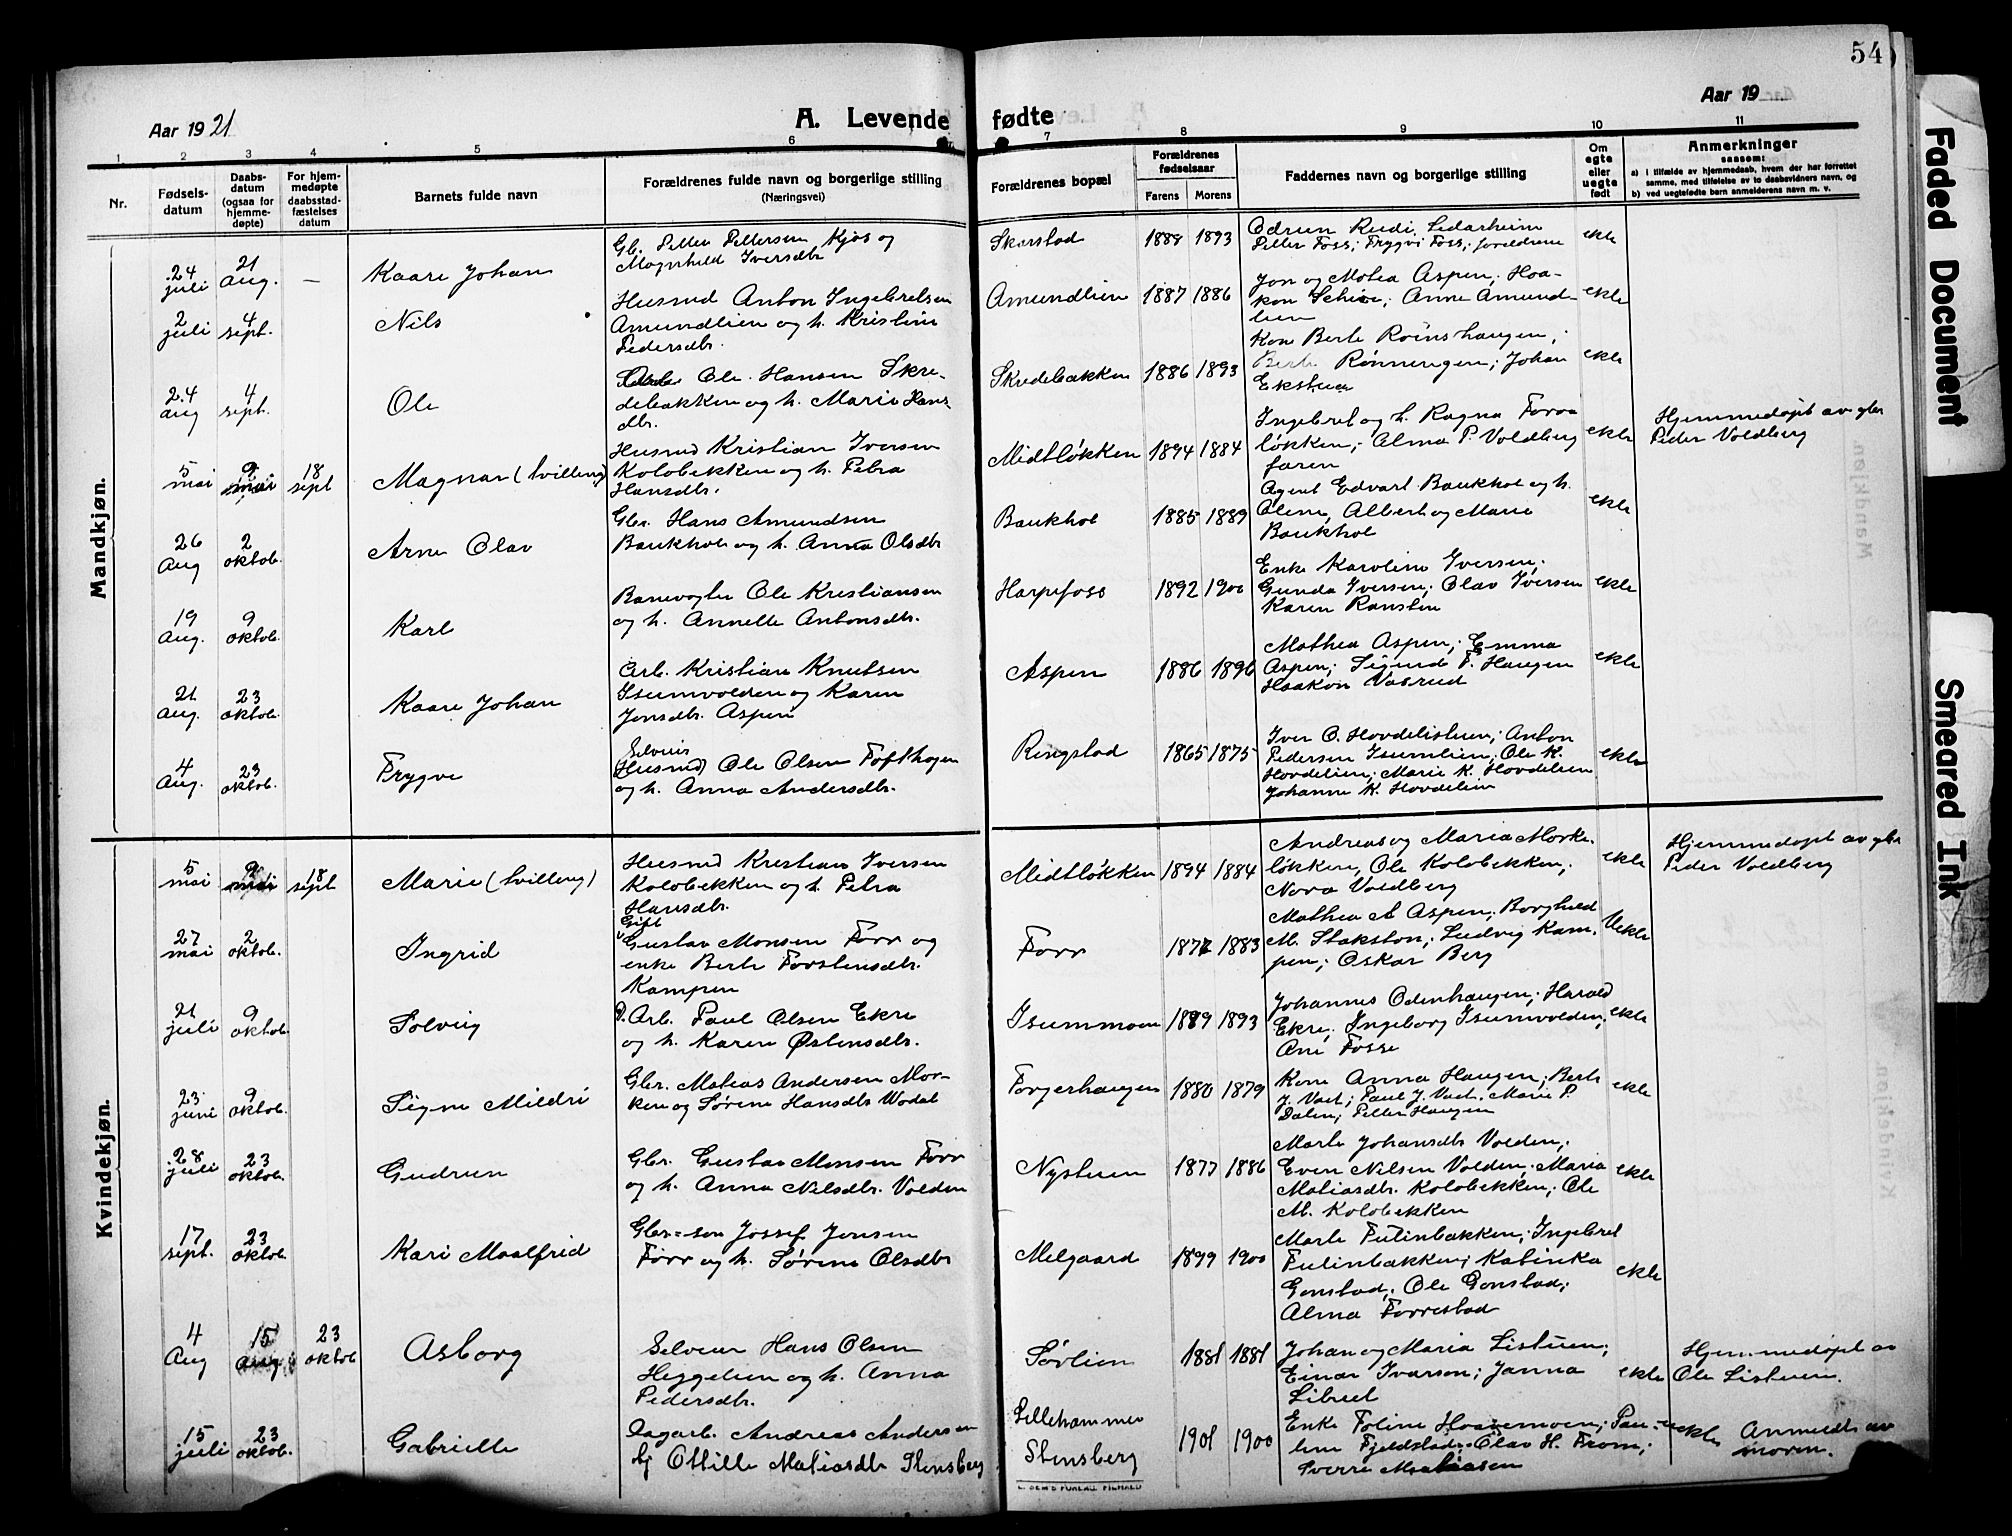 54
Aar 1921
A. Levende fødte
Aar 19
1 2 3 4 5 6 7 8 9 10 11
Nr.
Fødsels-
datum
Daabs-
datum
(ogsaa for
hjemme-
døpte)
For hjem-
medøpte
daabsstad-
fæstelses
datum
Barnets fulde navn
Forældrenes fulde navn og borgerlige stilling
(Næringsvei)
Forældrenes bopæl
Forældrenes
fødselsaar
Farens Morens
Faddernes navn og borgerlige stilling
Om
egte
eller
uegte
født
Anmerkninger
saasom:
a) i tilfælde av hjemmedaab, hvem der har forrettet
samme, med tilføielse av to daabsvidners navn, og
b) ved uegtefødte barn anmelderens navn m. v.
Mandkjøn.
24 juli 21 aug. — Kaare Johan
Gbr. Petter Pettersen Kjøs og
Magnhild Iversdtr.
Skurstad 1888 1893
Odrun Rudi, Sedarheim
Petter Foss; Trygvi Foss; foreldrene
ekte
2 juli 4 sept. Nils
Husmd Anton Ingebretsen
Amundlien og h. Kristine
Pedersdtr.
Amundlien 1887 1886
Jon og Matea Aspen; Haa-
kon Schiøe; Anne Amund-
lien
ekte
24 aug 4 sept. Ole
Ole Hansen Skre-
debakken og h. Marie Hans-
dtr.
Skredebakken 1886 1893
Kone Berte Roinshaugen;
Berte Rønnengen; Johan
Ekstuen
ekte
5 mai 9 mai 18 sept Magnar (tvilling)
Husmd Kristian Iversen
Kolobekken og h. Petra
Hansdtr.
Midtløkken 1894 1884
Ingebret og h. Ragna Forra
løkken; Alma P. Voldberg
faren
ekte
Hjemmedøpt av gbr
Peder Voldberg
26 Aug 2 oktob. Arne Olav
Gbr. Hans Amundsen
Baukhol og h. Anna Olsdtr
Baukhol 1885 1889
Agent Edvart Baukhol og h.
Oline, Albert og Marie
Baukhol
ekte
19 Aug. 9 oktob. Karl
Banevogter Ole Kristiansen
og h. Annette Antonsdtr.
Harpefoss 1892 1900
Enke Karoline Iversen;
Gunda Iversen; Olav Iversen
Karen Ransten
ekte
21 Aug. 23 oktob. Kaare Johan
Arb. Kristian Knutsen
Isumvolden og Karen
Jonsdtr. Aspen
Aspen 1886 1896
Mathea Aspen; Emma
Aspen; Sigurd F. Haugen
Haakon Vasrud
ekte
4 Aug. 23 oktob. Trygve
Selveier
(Husmd) Ole Olsen Tofthagen
og h. Anna Andersdtr.
Ringstad 1865 1875
Iver O. Hovdelistuen; Anton
Pedersen Isumlien; Ole K.
Hovdelien; Marie K. Hovdelien
Johanne K. Hovdelien
ekte
Kvindekjøn.
5 mai 9 mai 18 sept Marie (tvilling)
Husmd Kristian Iversen
Kolobekken og h. Petra
Hansdtr.
Midtløkken 1894 1884
Andreas og Maria Morke-
løkken, Ole Kolobekken;
Nora Voldberg
ekte
Hjemmedøpt av gbr
Peder Voldberg
27 mai 2 oktob. Ingrid
Gift
Gustav Monsen Forr og
enke Berte Torstensdtr.
Kampen
Forr 1877 1883
Mathea A Aspen; Borghild
M. Stakston; Ludvig Kam-
pen; Oskar Berg
Uekte
21 juli 9 oktob. Solveig
Arb. Paul Olsen Ekre
og h. Karen Østensdtr.
Isummoen 1889 1893
Johannes Odenhaugen; Harald
Ekre; Ingeborg Isumvolden;
Ane Fosse
ekte
23 juni 9 oktob. Signe Mildri
Gbr. Matias Andersen Mor-
ken og Sørine Hansdtr Wadal
Torgerhaugen 1880 1879
Kone Anna Haugen; Berte
J. Vast; Paul J. Vast, Marie P.
Dalen; Petter Haugen
ekte
28 juli 23 oktob. Gudrun
Gbr. Gustav Monsen Forr
og h. Anna Nilsdtr. Volden
Nystuen 1877 1886
Marte Johansdtr Volden;
Even Nilsen Volden; Maria
Matiasdtr. Kolobekken; Ole
M. Kolobekken
ekte
17 sept. 23 oktob. Kari Maalfrid
Gbr.=søn Jossef Jonsen
Forr og h. Sørine Olsdtr
Melgaard 1899 1900
Marte Tulinbakken; Ingebret
Tulinbakken; Katinka
Gonstad; Ole Gonstad;
Alma Forrestad
ekte
4 Aug 15 aug 23 oktob Asborg
Selveier Hans Olsen
Heggelien og h. Anna
Pedersdtr.
Sørlien 1881 1881
Johan og Maria Listuen;
Einar Ivarson; Janna
Listuel
ekte
Hjemmedøpt av
Ole Listuen.
15 juli 23 oktob. Gabrielle
Dagarb. Andreas Andersen
og Ottilie Matiasdtr Stensberg
Lillehammer
Stensberg
1901 1900
Enke Toline Haavemoen; Pau-
line Fjeldstad; Olav H. From;
Sverre Mathiasen
uekte
Anmeldt av
moren.
Faded Document
Smeared Ink